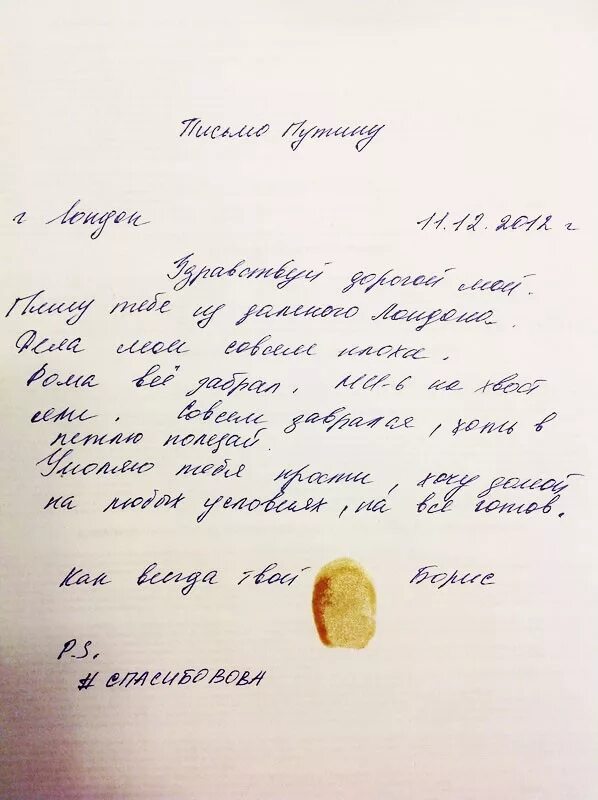 Письмо Путину
г Лондон 11.12.2012 г
Здравствуй дорогой мой.
Пишу тебе из далекого Лондона.
Дела мои совсем плохи.
Рома всё забрал. МИ-6 на хвост
сели. Совсем заврался, хоть в
петлю полезай.
Умоляю тебя прости, хочу домой
на любых условиях, на всё готов.
Как всегда твой Борис
P.S.
#СПАСИБОВОВА